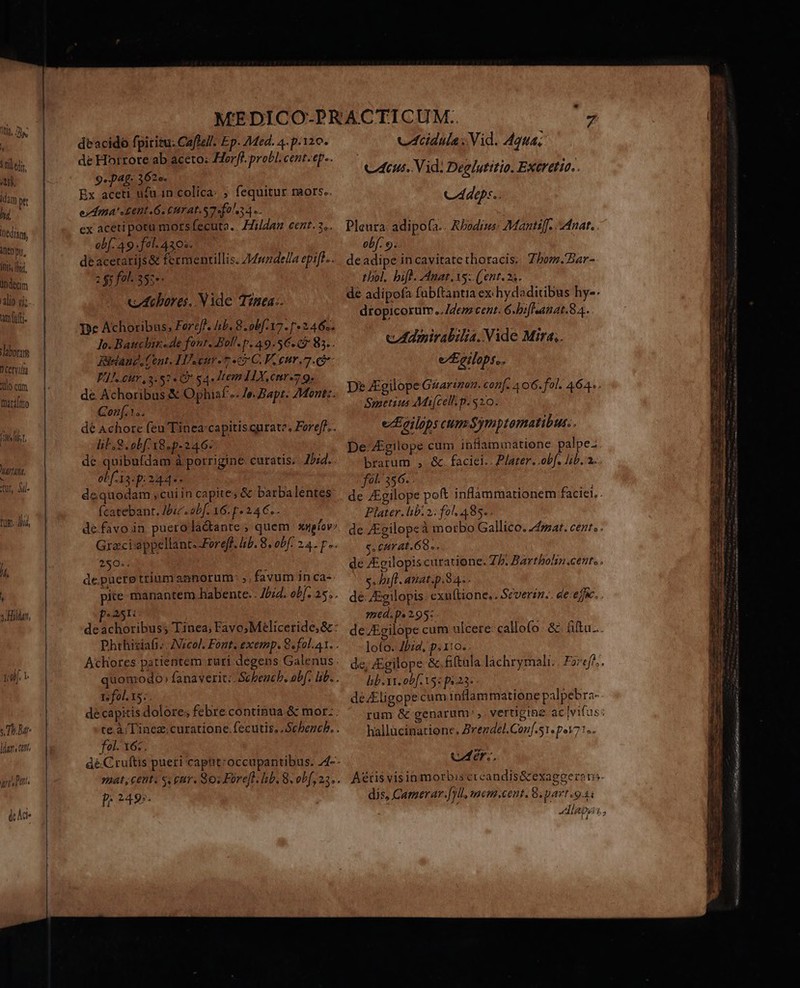 MEDICO-PRACTICUM. 7
de acido ſpiritu. Caſtell. Ep. Med. 4. p. 120.
de Horrore ab aceto. Horſt. probl. cent. ep.
9. pag. 362.
Ex aceti uſu in colica, ſequitur mors.
ex aceti potu mors ſecuta. Hildan cent. 3.
obſ. 49. fol. 430.
de acetariis & fermentillis. Mundella epiſt.
Achores. Vide Tinea.
De Achoribus, Foreſt. lib. 8. obſ. 17. p. 246.
de Achoribus & Ophiaſ. Io. Bapt. Mont.
Conſ. 1.
de Achore ſeu Tinea capitis curata, Foreſt.
lib. 8. obſ. 18. p. 246.
de quibuſdam à porrigine curatis. Ibid.
obſ. 13. p. 244.
de quodam, cui in capite, & barba lentes
ſcatebant. Ibid. obſ. 16. p. 246.
de favo in puero lactante, quem κηρίον
Græci appellant. Foreſt. lib. 8. obſ. 24. p.
250.
de puero trium annorum, favum in ca-
pite manantem habente. Ibid. obſ. 25.
p. 251.
de achoribus, Tinea, Favo, Meliceride, &
Phthiriaſi. Nicol. Font. exemp. 8. fol. 41.
Achores patientem ruri degens Galenus
quomodo ſanaverit. Schench. obſ. lib.
1. fol. 15.
de capitis dolore, febre continua & mor-
te à Tineæ curatione ſecutis. Schench.
fol. 16.
de Cruſtis pueri caput occupantibus. A-
mat. cent. 5. cur. 80. Foreſt. lib. 8. obſ. 23.
p. 249.
Acidulæ. Vid. Aqua.
Acus. Vid. Deglutitio. Excretio.
Adeps.
Pleura adipoſa. Rhodius Mantiſſ. Anat.
obſ. 9.
de adipe in cavitate thoracis. Thom. Bar-
thol. hiſt. Anat. 15. Cent. 2.
de adipoſa ſubſtantia ex hydatitibus hy-
dropicorum. Idem cent. 6. hiſt. anat. 84.
Admirabilia. Vide Mira.
Ægilops.
De Ægilope Guarinon. conſ. 406. fol. 464.
Smetius Miſcell. p. 520.
Ægilops cum Symptomatibus.
De Ægilope cum inflammatione palpe-
brarum, & faciei. Plater. obſ. lib. 2.
fol. 356.
de Ægilope poſt inflammationem faciei.
Plater. lib. 2. fol. 485.
de Ægilope à morbo Gallico. Amat. cent.
5. curat. 68.
de Ægilopis curatione. Th. Bartholin. cent.
5. hiſt. anat. p. 84.
de Ægilopis exuſtione. Severin. de effic.
med. p. 295.
de Ægilope cum ulcere calloſo & fiſtu-
loſo. Ibid. p. 110.
de Ægilope & fiſtula lachrymali. Foreſt.
lib. 11. obſ. 15. p. 23.
de Æligope cum inflammatione palpebra-
rum & genarum, vertigine ac viſus
hallucinatione. Brendel. Conſ. 51. p. 171.
Aër.
Aëris vis in morbis creandis & exaggeran-
dis, Camerar. ſyll. mem. cent. 8. part. 94.